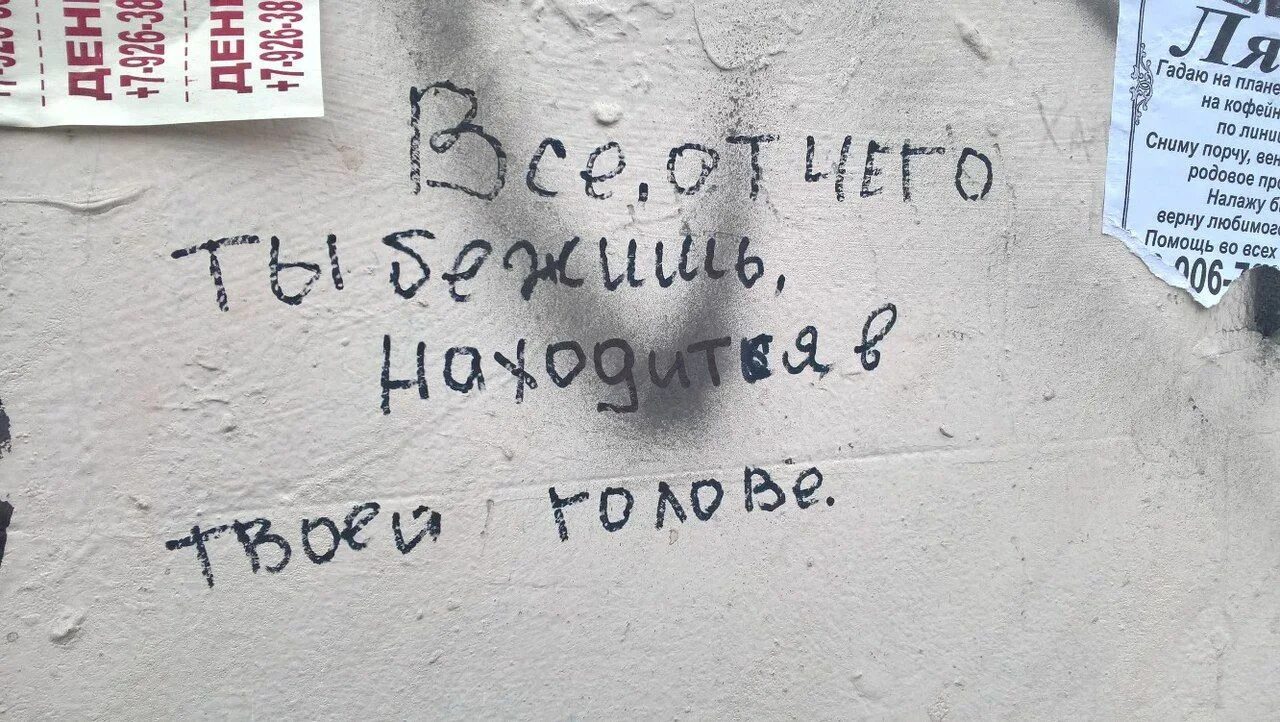 ДЕН
+7-926-38
ДЕН
+7-926-38
Все, от чего
ты бежишь,
находится в
твоей голове.
Гадаю на
на
по
Сниму порчу,
родовое
Налажу
верну
Помощь во всех
006-7